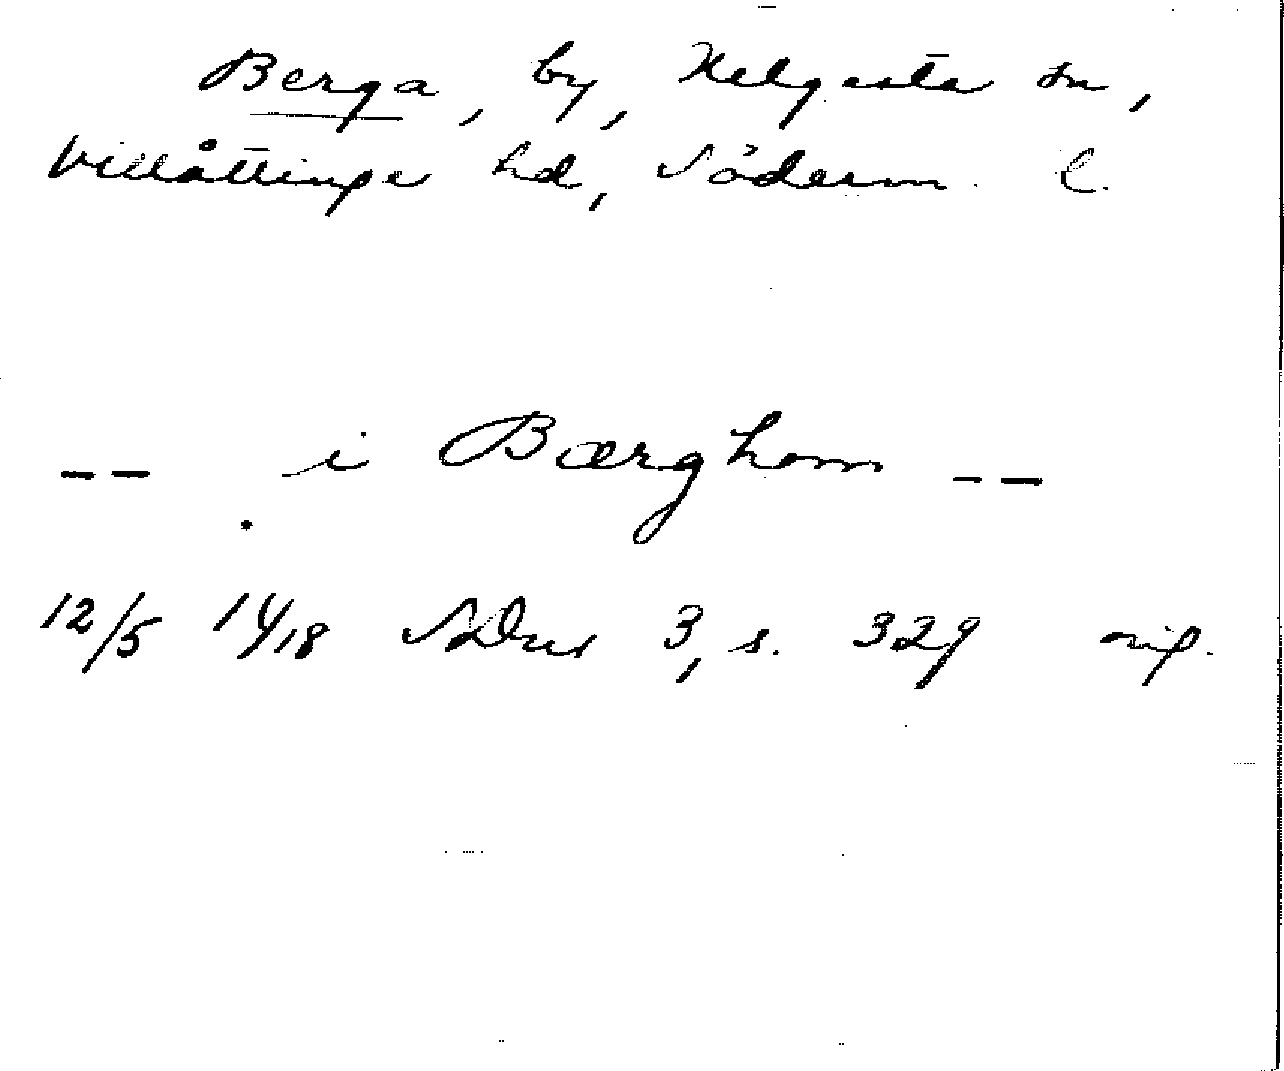 Berga, by, Helgesta sn,
Villåttinge hd, Söderm. l.
-- i Bærghom --
12/5 14/18 SDns 3, s. 329 orig.